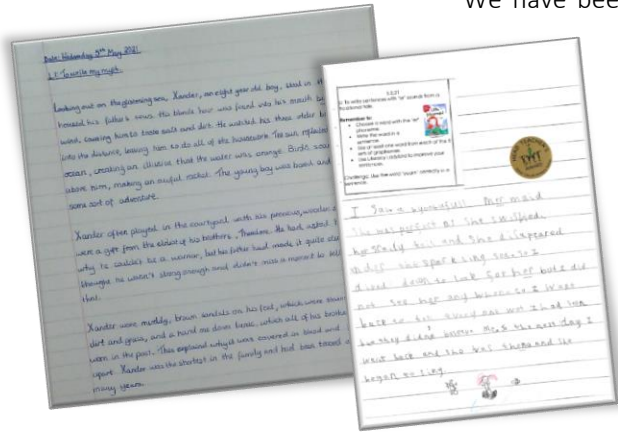 We have been
Date: Wednesday 5th May 2021
L.I: To write my myth.
Looking out on the gleaming sea, Xander, an eight year old boy, stood in
his father's
wind, causing him to taste salt and dirt. He watched his three older
into the distance, leaving him to do all of the housework. The sun
ocean, creating an illusion that the water was orange. Birds
above him, making an awful racket. The young boy was bored and
some sort of adventure.
Xander often played in the courtyard with his precious, wooden
were a gift from the eldest of his brothers, Theodore. He had asked
why he couldn't be a warrior, but his father had made it quite
thought he wasn't strong enough and didn't miss a moment to tell
that.
Xander wore muddy, brown sandals on his feet, which were
dirt and grass, and a hand me down tunic, which all of his
worn in the past. This explained why it was covered in blood and
apart. Xander was the shortest in the family and had been teased
many years.
to write sentences with
Remember to:
Choose a word with the
phoneme.
Write the word in a
sentence.
Use at least one word from each of the
sets of graphemes.
to improve your
sentences.
Challenge: Use the word correctly in a
sentence.
HEAD TEACHER'S
I saw a Mer maid
She was perfect as she
tail and she disappeared
under the sparkling sea. So I
dived down to look for her but I did
not see her any where so I went
back to tell every one wot I had seen
but they didn't believe me. the next day I
went back and she was there and she
began to sing.